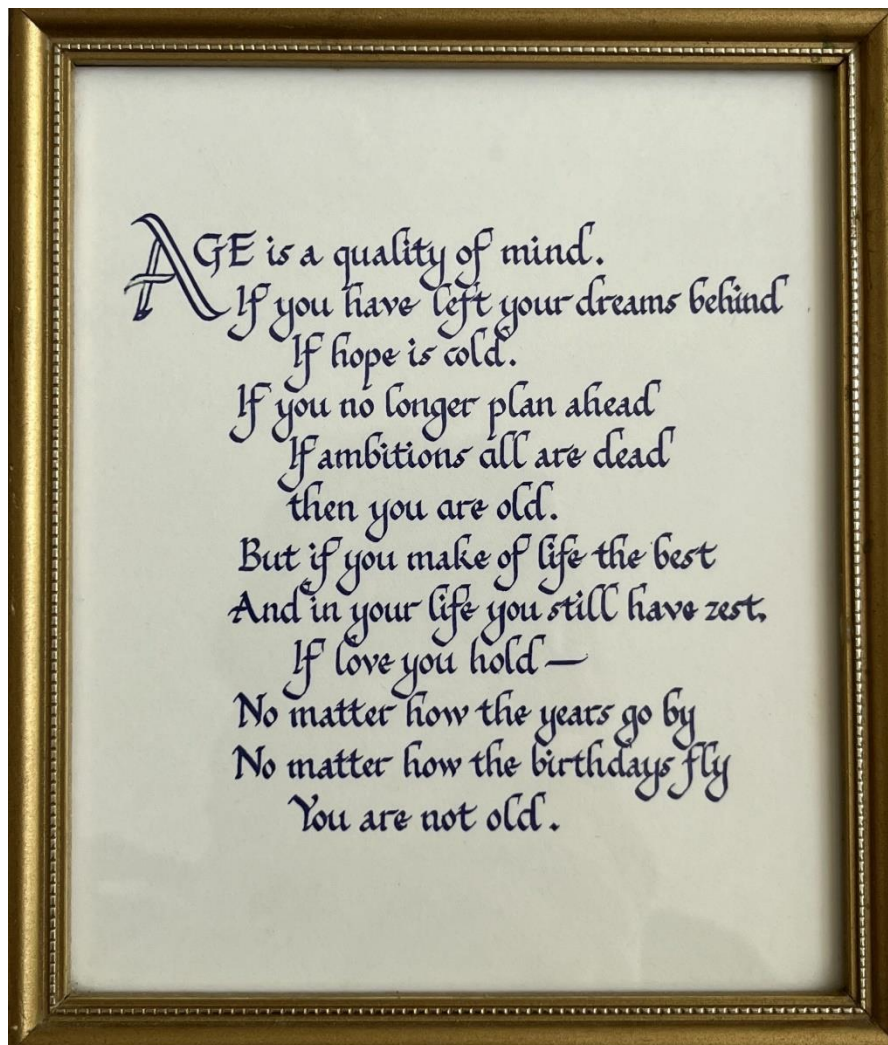 AGE is a quality of mind.
If you have left your dreams behind
If hope is cold.
If you no longer plan ahead
If ambitions all are dead
then you are old.
But if you make of life the best
And in your life you still have zest,
If love you hold —
No matter how the years go by
No matter how the birthdays fly
You are not old.